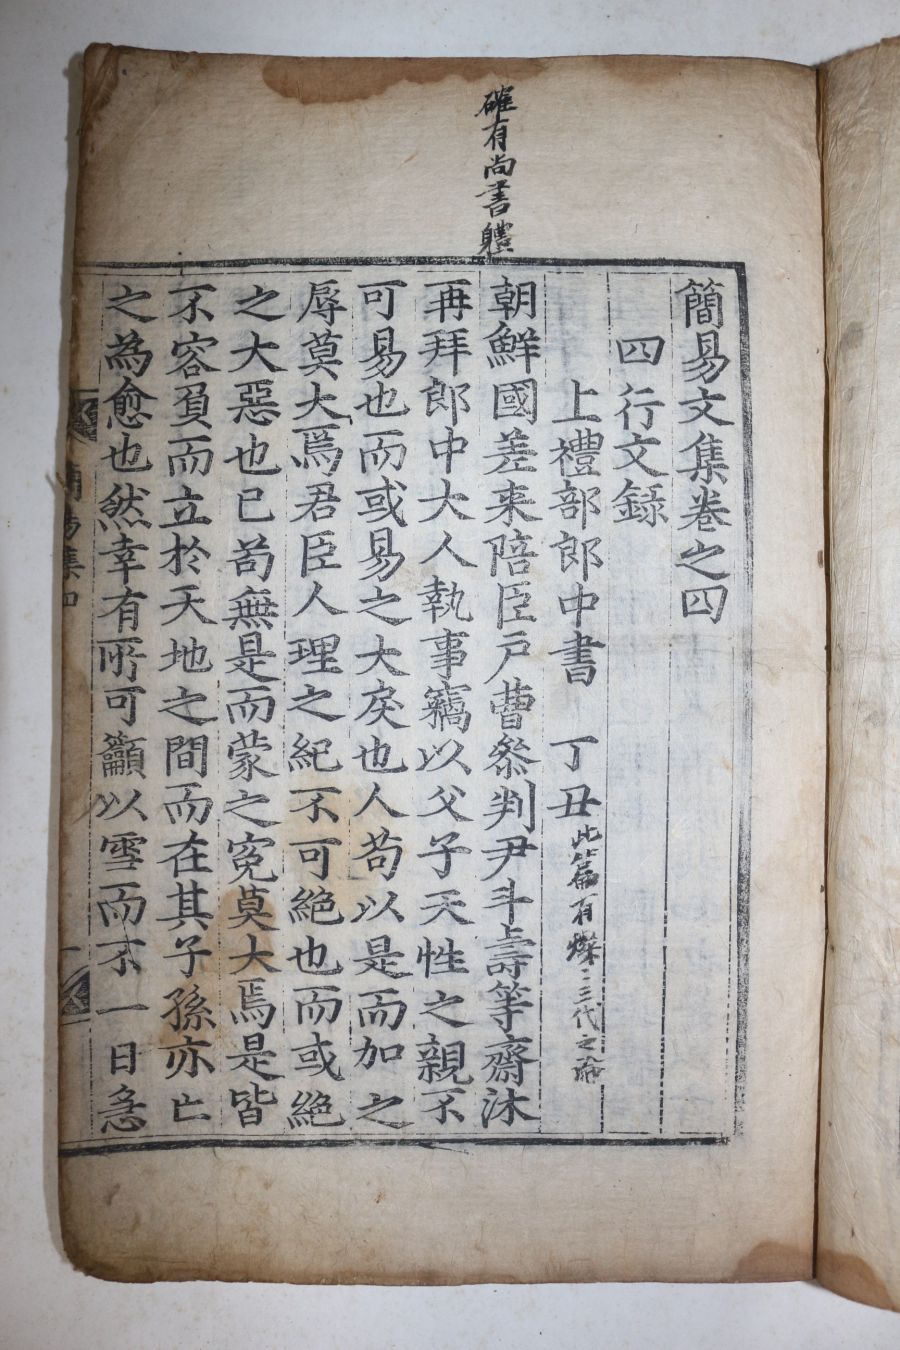 確有尚書軆
簡易文集卷之四
四行文録
上禮部郎中書 丁丑
此篇有燦三代之論
朝鮮國差来陪臣戸曹叅判尹斗壽等齋沐
再拜郎中大人執事竊以父子天性之親不
可易也而或易之大戾也人苟以是而加之
辱莫大焉君臣人理之紀不可絶也而或絶
之大惡也已苟無是而蒙之寃莫大焉是皆
不容負而立於天地之間而在其子孫亦亡
之為愈也然幸有所可籲以雪而不一日急
簡易集四